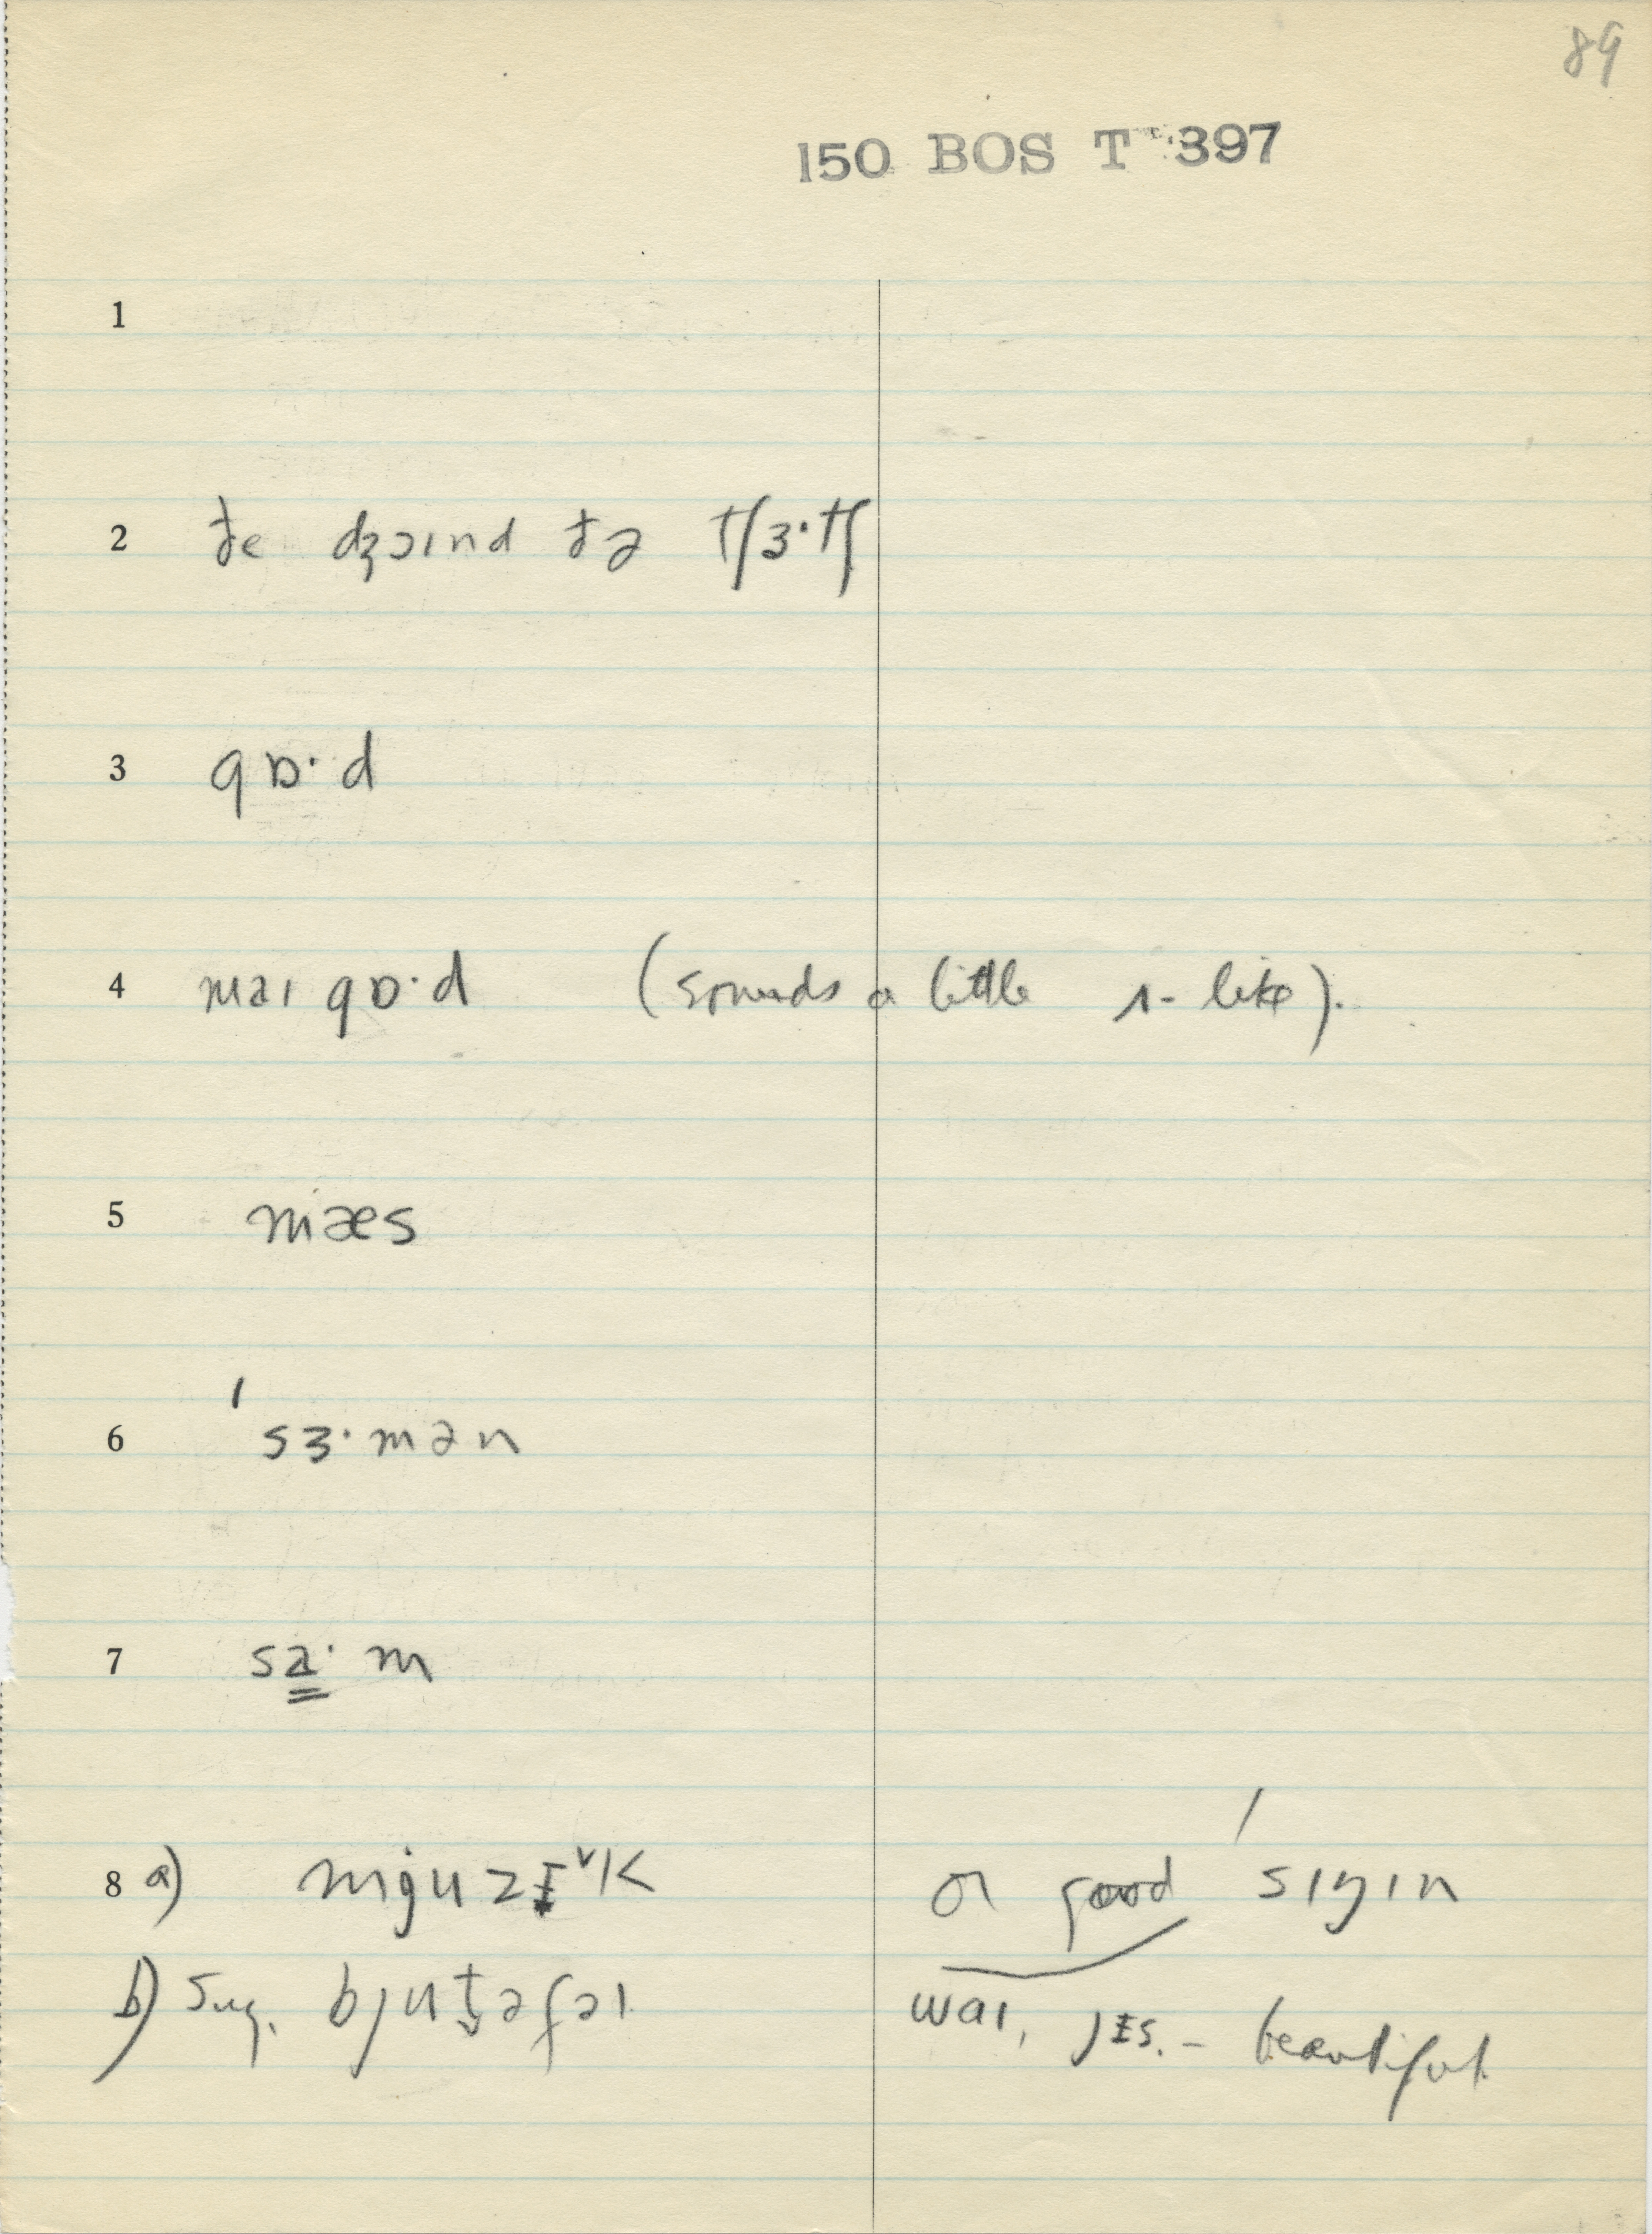 89
150 BOS T 397
1
2 ðe dʒɔɪnd ðə tʃɜ·tʃ
3 gɒ·d
4 maɪ gɒ·d (sounds a little ʌ-like).
5 mæs
6 ˈsɜ·mən
7 sa̳·m
8 a) mjuzɪ˅k or good ˈsɪŋɪn
b) sug. bjut̬əfəl waɪ, jɛs. – beautiful